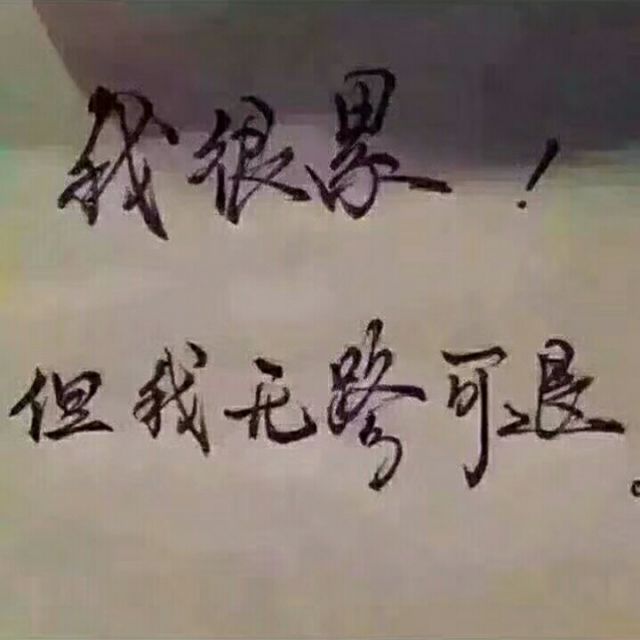 我很累！
但我无跨可退。